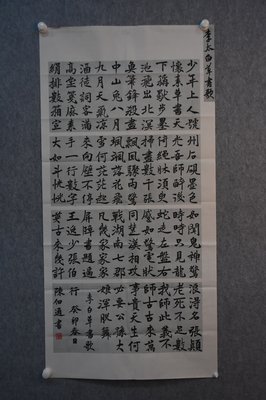 李太白草書歌
少年上人號
懷素草書天
下稱獨步墨
池飛出北溟
魚筆鋒殺盡
中山兔八月
九月天氣涼
酒徒詞客滿
高堂箋麻素
絹排數箱宣
州石硯墨色
光吾師醉後
倚繩床須臾
掃盡數千張
飄風驟雨驚
颯颯落花飛
雪何茫茫起
來向壁不停
手一行數字
大如斗怳怳
如聞鬼神驚
時時只見龍
蛇走左盤右
蹙如驚電狀
同楚漢相攻
戰湖南七郡
凡幾家家家
屏障書題遍
王逸少張伯
英古來幾許
浪得名張顛
老死不足數
我師此義不
師古古來萬
事貴天生何
必要公孫大
娘渾脫舞
李白草書歌
行 癸卯春日
陳伯通書